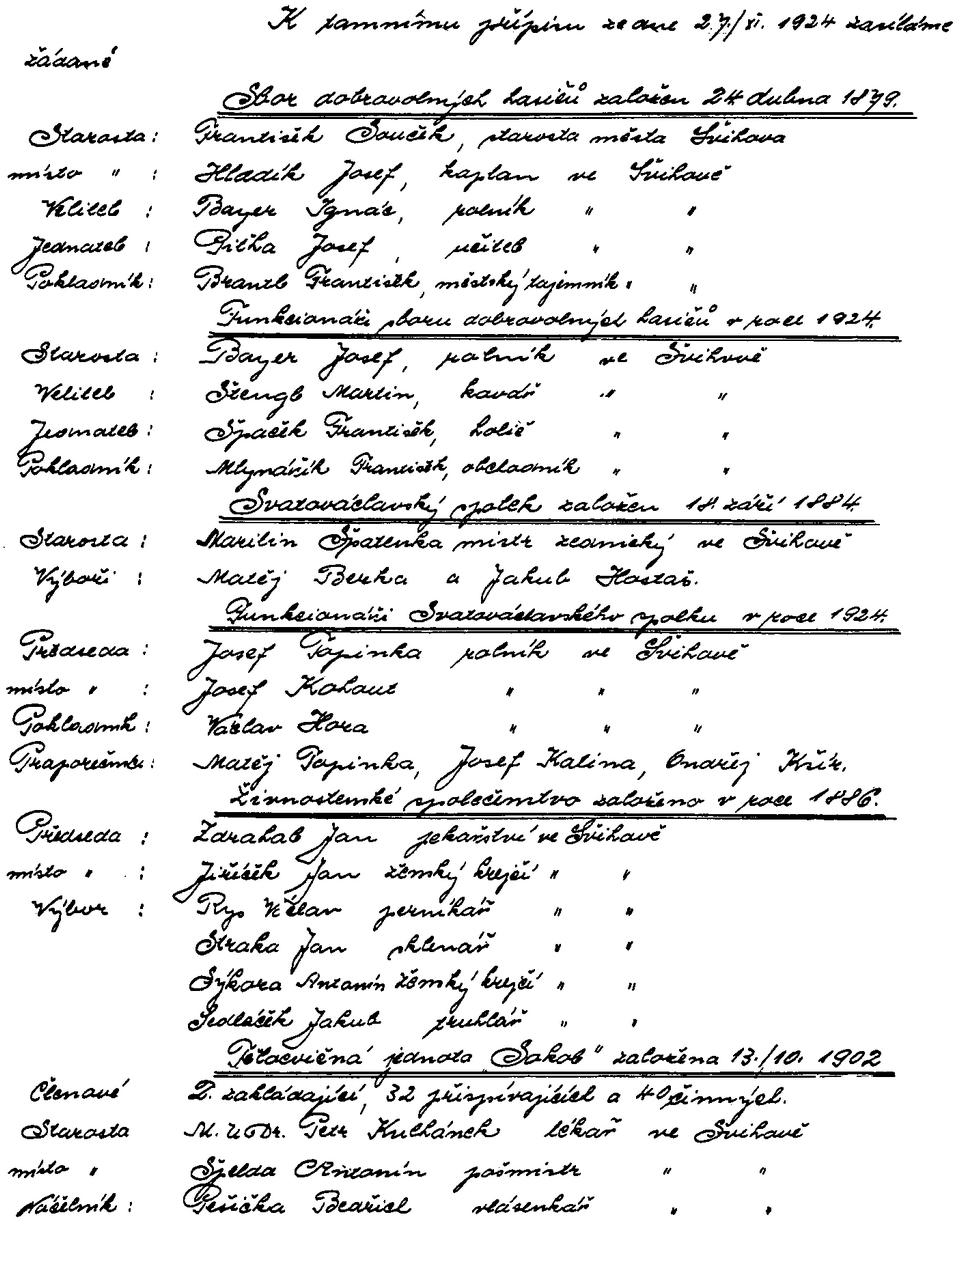 K tamnímu přípisu ze dne 27./XI. 1924 zasíláme
žádané
Sbor dobrovolných hasičů založen 24 dubna 1879.
Starosta: František Souček, starosta města Švihova
místo " : Hladík Josef, kaplan ve Švihově
Velitel : Bayer Ignác, rolník " "
Jednatel : Pitha Josef, učitel " "
Pokladník: Brantl František, městský tajemník " "
Funkcionáři sboru dobrovolných hasičů v roce 1924.
Starosta : Bayer Josef, rolník ve Švihově
Velitel : Štengl Martin, kovář " "
Jednatel : Špaček František, holič " "
Pokladník: Mlynářík František, obchodník " "
Svatováclavský spolek založen 18. září 1884.
Starosta : Martin Špatenka mistr zednický ve Švihově
Výboři : Matěj Berka a Jakub Hostaš.
Funkcionáři Svatováclavského spolku v roce 1924.
Předseda : Josef Topinka rolník ve Švihově
místo " : Josef Kohout " " "
Pokladník : Václav Hora " " "
Praporečníci : Matěj Topinka, Josef Kalina, Ondřej Kšír.
Živnostenské společenstvo založeno v roce 1886.
Předseda : Zdrahal Jan pekařství ve Švihově
místo " : Jiříček Jan žemský krejčí " "
Výbor : Rys Václav perníkář " "
Straka Jan sklenář " "
Sýkora Antonín žemský krejčí " "
Sedláček Jakub truhlář " "
Tělocvičná jednota "Sokol" založena 13./10. 1902
Členové 2. zakládající, 32 přispívajících a 40 činných.
Starosta M. U Dr. Petr Kulhánek lékař ve Švihově
místo " Špelda Antonín poštmistr " "
Náčelník : Pešička Bedřich vlásenkář " "